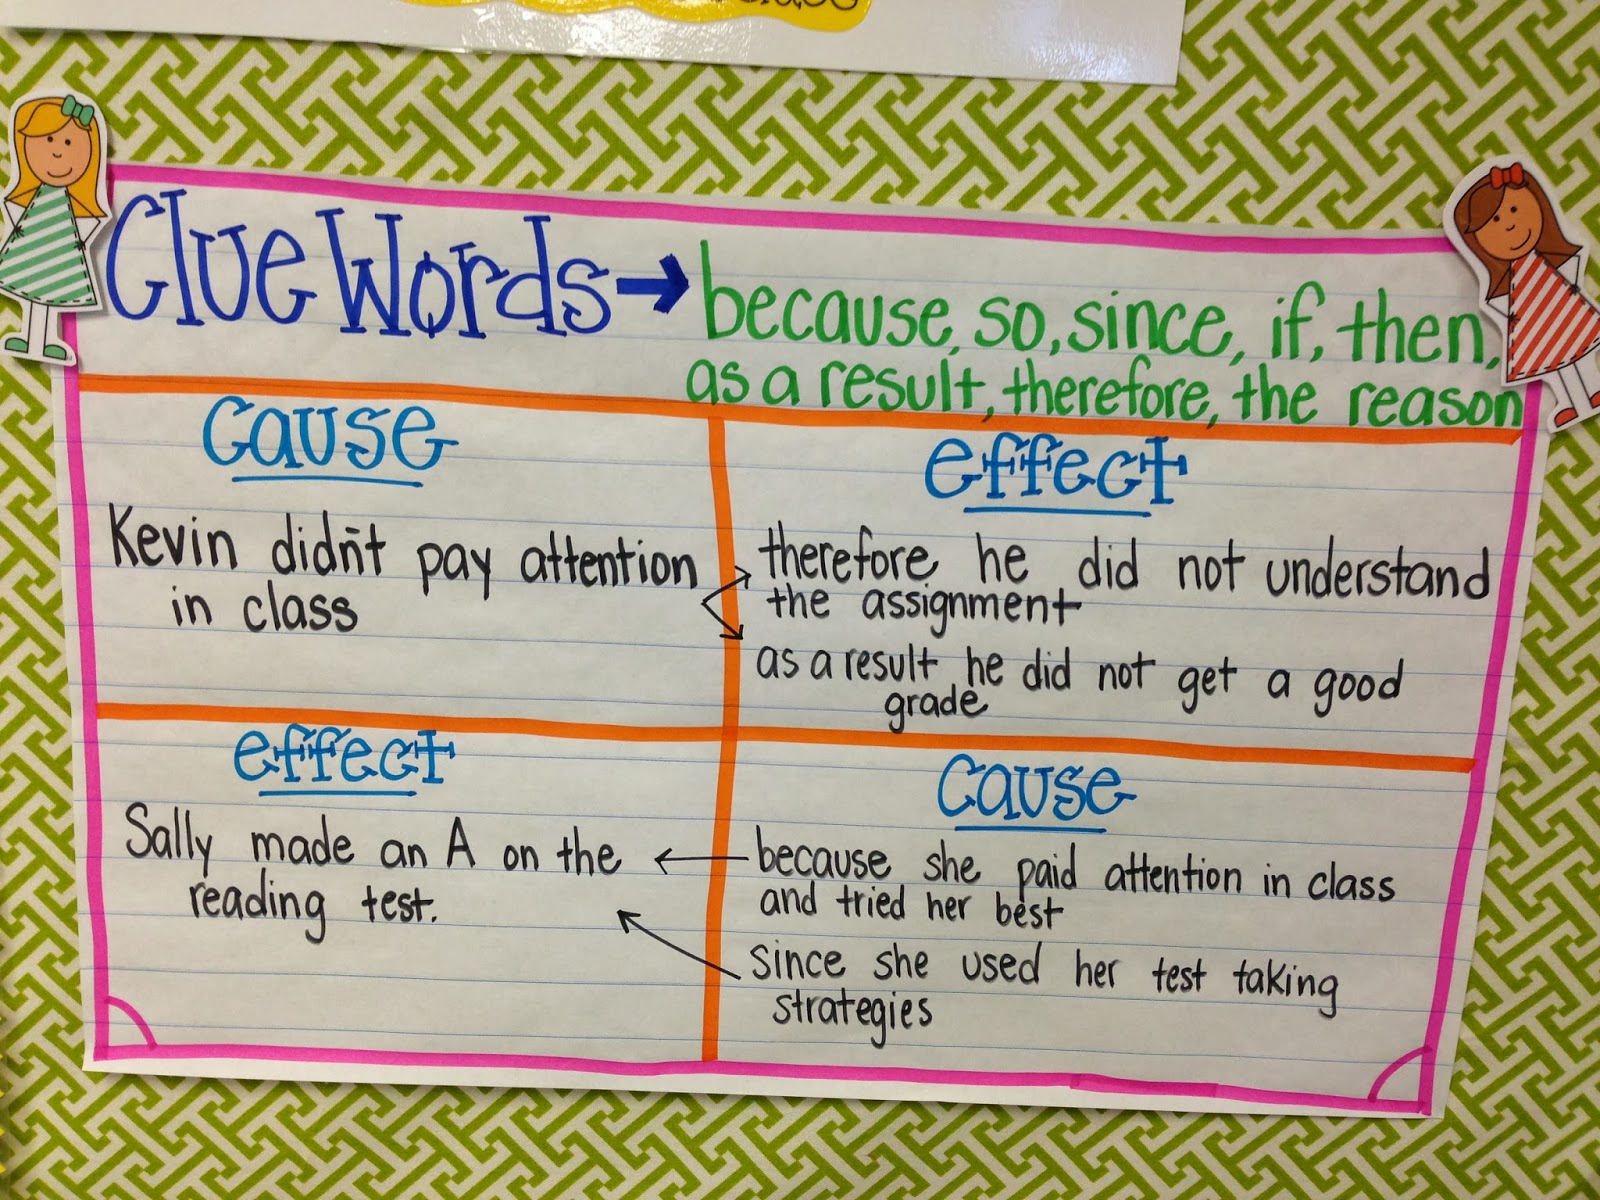 Clue Words → because, so, since, if, then,
as a result, therefore, the reason
cause
effect
Kevin didn't pay attention
in class
therefore he did not understand
the assignment
as a result he did not get a good
grade
effect
cause
Sally made an A on the
reading test.
because she paid attention in class
and tried her best
since she used her test taking
strategies